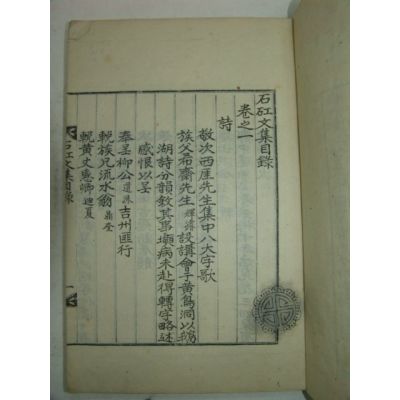 石矼文集目錄
卷之一
詩
敬次西厓先生集中八大字歌
族父石齋先生設講會于黃鳥洞以鵝
湖詩分韻敍其事巓病未赴得轉字略述
感恨以呈
奉呈柳公道洙吉州匪行
輓族兄流水翁晶奎
輓黃丈惠卿迪夏
石矼文集目錄
一